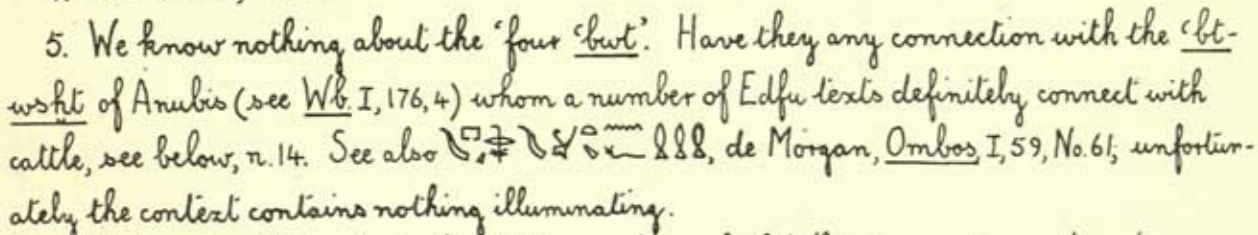 5. We know nothing about the 'four ꜥbwt'. Have they any connection with the ꜥbt-
wsḫt of Anubis (see Wb. I, 176, 4) whom a number of Edfu texts definitely connect with
cattle, see below, n. 14. See also , de Morgan, Ombos, I, 59, No. 61; unfortun-
ately the context contains nothing illuminating.